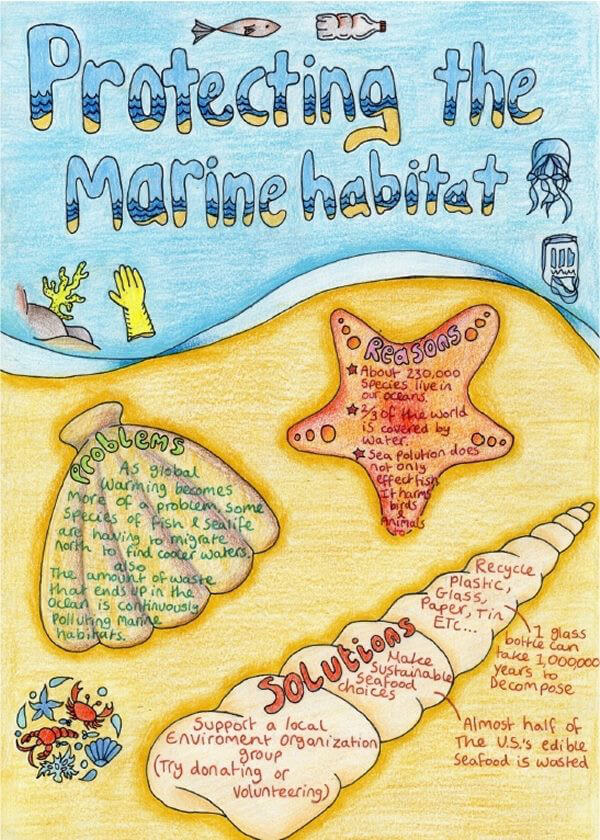 Protecting the
Marine habitat
Reasons
About 230,000
species live in
our oceans.
2/3 of the world
is covered by
water.
Sea polution does
not only
effect fish
It harms
birds
&
Animals
to
Problems
As global
Warming becomes
More of a problem, some
species of fish & sealife
are having to migrate
north to find cooler waters.
also
The amount of waste
that ends up in the
Ocean is continuously
Polluting Marine
habitats.
Solutions
Recycle
Plastic,
Glass,
Paper, Tin
ETC...
1 glass
bottle can
take 1,000000
years to
Decompose
Make
Sustainable
Seafood
choices
Almost half of
The U.S.'s edible
Seafood is wasted
Support a local
Enviroment Organization
group
(Try donating or
volunteering)